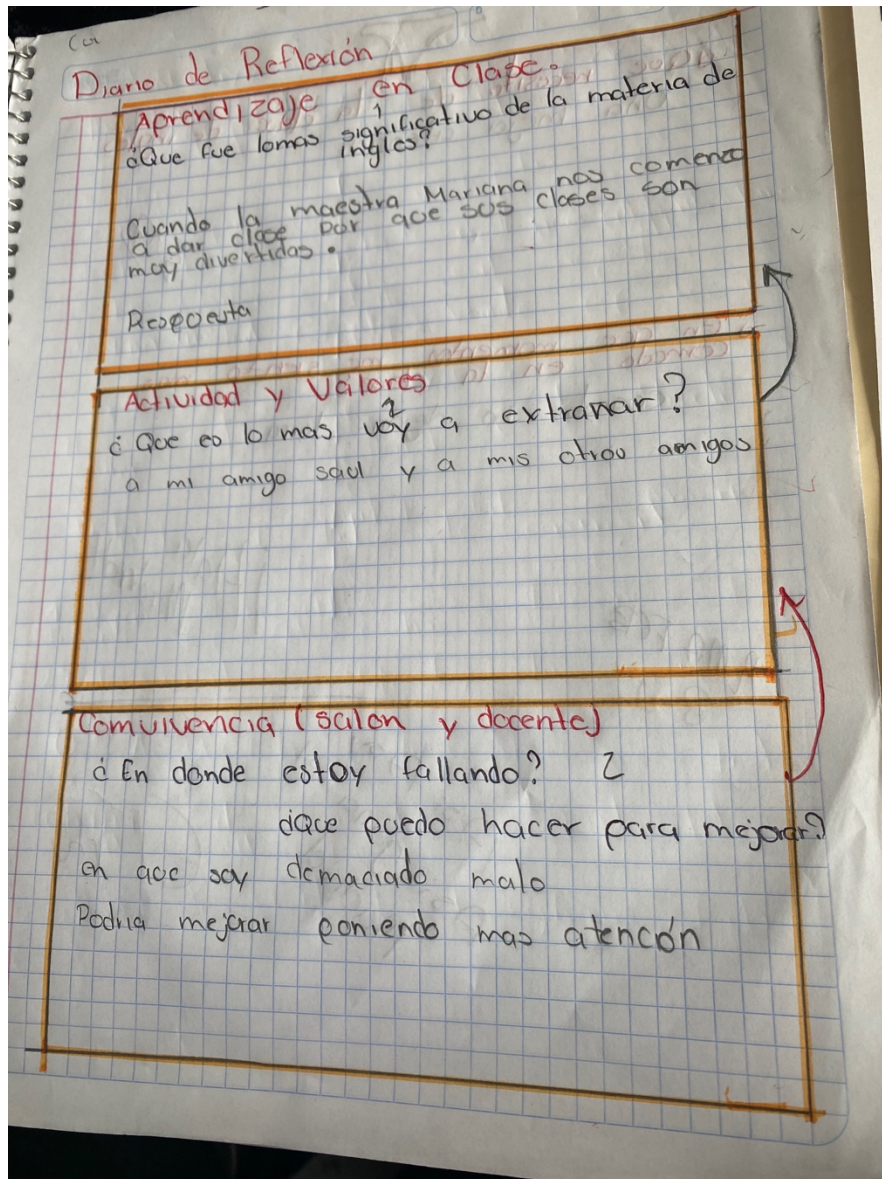 Diario de Reflexión
Aprendizaje en Clase.
1
¿Que fue lomas significativo de la materia de
ingles?
Cuando la maestra Mariana nos comenzo
a dar clase por que sus clases son
muy divertidas.
Respuesta
Actividad y Valores
2
¿Que es lo mas voy a extranar?
a mi amigo saul y a mis otros amigos
Comuivencia (salon y docente)
¿En donde estoy fallando? 2
¿Que puedo hacer para mejorar?
en que soy demaciado malo
Podria mejorar poniendo mas atención